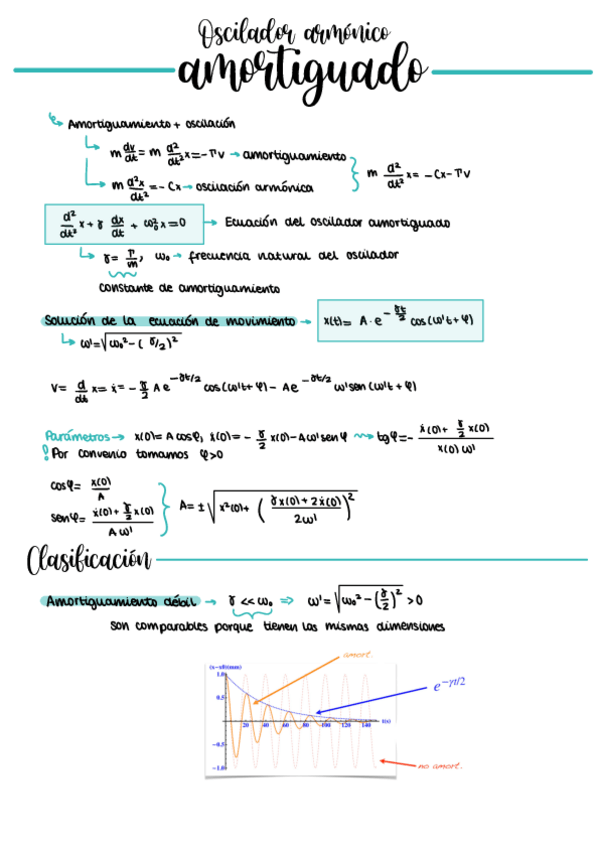 Oscilador armónico
amortiguado
Amortiguamiento + oscilación
m dv/dt = m d²/dt² x = -Γv → amortiguamiento
m d²x/dt² = -Cx → oscilación armónica
m d²/dt² x = -Cx - Γv
d²/dt² x + γ dx/dt + ω₀² x = 0 → Ecuación del oscilador amortiguado
γ = Γ/m, ω₀ → frecuencia natural del oscilador
constante de amortiguamiento
Solución de la ecuación de movimiento → x(t) = A·e^(-γt/2) cos(ω't + φ)
ω' = √(ω₀² - (γ/2)²)
v = d/dt x = ẋ = -γ/2 A e^(-γt/2) cos(ω't + φ) - A e^(-γt/2) ω' sen(ω't + φ)
Parámetros → x(0) = A cosφ, ẋ(0) = -γ/2 x(0) - Aω' senφ ⇝ tgφ = - (ẋ(0) + γ/2 x(0))/(x(0) ω')
! Por convenio tomamos φ>0
cosφ = x(0)/A
senφ = (ẋ(0) + γ/2 x(0))/(A ω')
A = ± √(x²(0) + ((γx(0) + 2ẋ(0))/2ω')²)
Clasificación
Amortiguamiento débil → γ << ω₀ ⇒ ω' = √(ω₀² - (γ/2)²) > 0
son comparables porque tienen las mismas dimensiones
amort.
(x-x0)(mm)
1.0
e^(-γt/2)
0.5
20 40 60 80 100 120 140 t(s)
-0.5
-1.0
no amort.